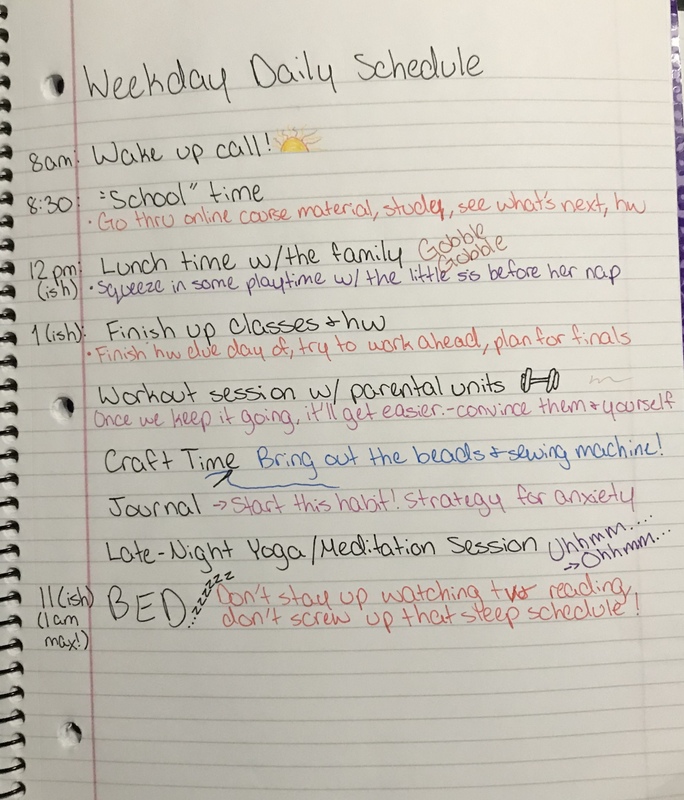 Weekday Daily Schedule
8am: Wake up call!
8:30: "School" time
• Go thru online course material, study, see what's next, hw
12pm (ish): Lunch time w/the family Gobble Gobble
• Squeeze in some playtime w/ the little sis before her nap
1(ish): Finish up classes & hw
• Finish hw due day of, try to work ahead, plan for finals
Workout session w/ parental units
Once we keep it going, it'll get easier -convince them & yourself
Craft Time Bring out the beads & sewing machine!
Journal → Start this habit! Strategy for anxiety
Late-Night Yoga/Meditation Session Uhhmm....
→ Ohhmm...
11(ish) (1am max!) BED ...zzzzzz Don't stay up watching tv or reading,
don't screw up that sleep schedule!